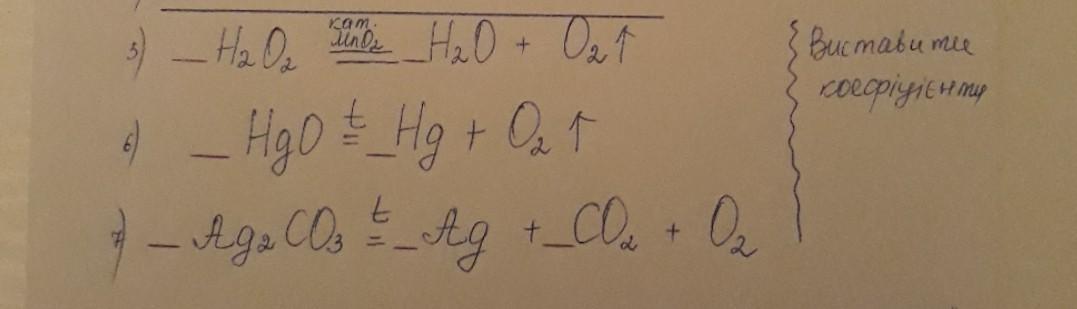 5) _ H₂O₂ кат. MnO₂ = _ H₂O + O₂↑
6) _ HgO t = _ Hg + O₂↑
7) _ Ag₂CO₃ t = _ Ag + _ CO₂ + O₂
Виставити
коефіцієнти